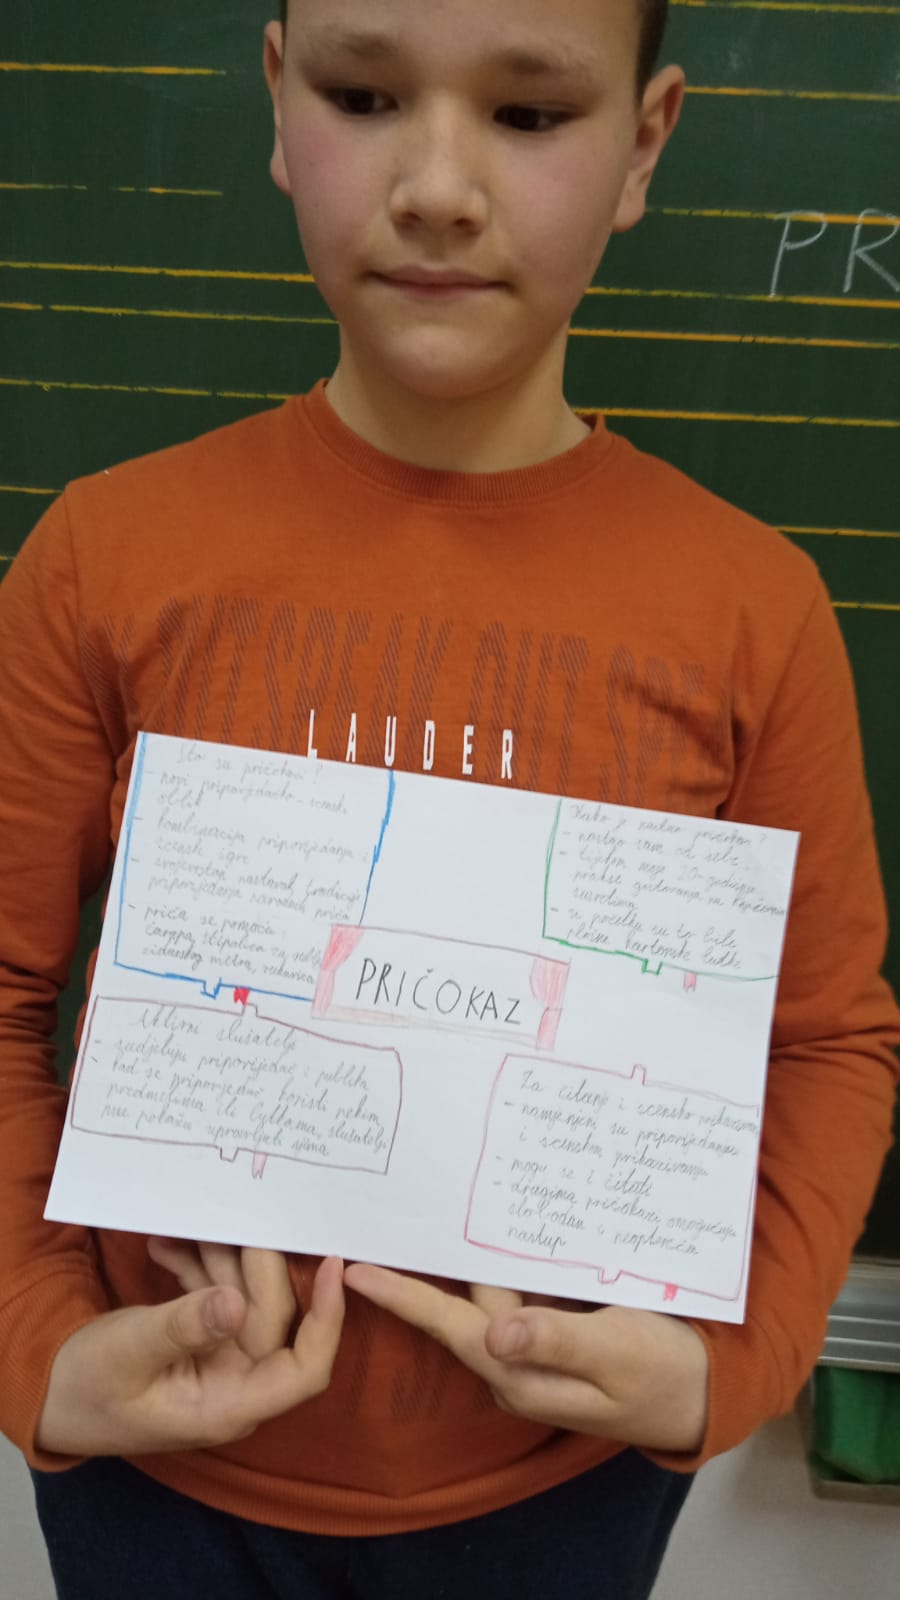 PR
LAUDER
Što su pričokazi?
- novi pripovjedačko-scenski
oblik
- kombinacija pripovijedanja i
scenske igre
- svojevrstan nastavak tradicije
pripovijedanja narodnih priča
- priča se pomoću:
čarapa, štipalica za rublje,
zidarskog mistra, rukavica
Kako je nastao pričokaz?
- nastao sam od sebe
- tijekom moje 20-godišnje
prakse gostovanja na književnim
susretima
- u početku su to bile
plošne kartonske lutke
PRIČOKAZ
Aktivni slušatelji
- sudjeluju pripovjedač i publika
- kad se pripovjedač koristi nekim
predmetima ili lutkama, slušatelji
mu pokažu upravljati njima
Za čitanje i scensko prikazivanje
- namijenjeni su pripovijedanju
i scenskom prikazivanju
- mogu se i čitati
- drugima pričokazi omogućuju
slobodan i neopterećen
nastup